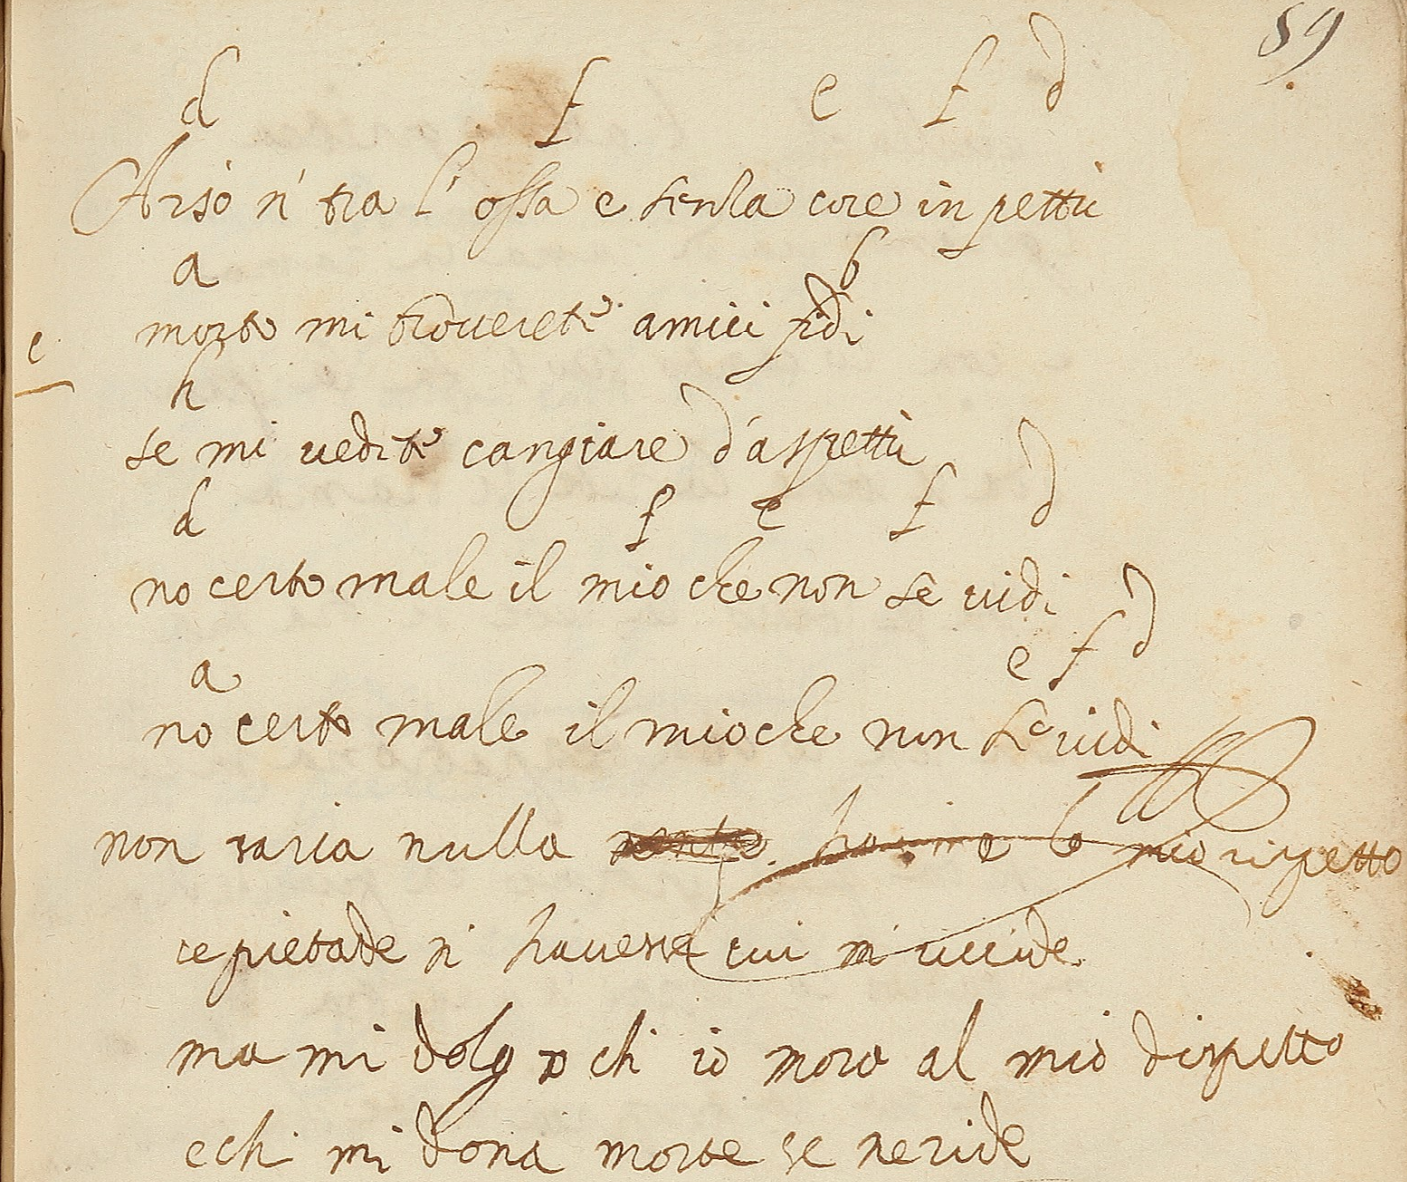 89
d f e f d
Arso n' tra l' ossa e senza core in pettu
a b
morto mi trouerete amici fidi
e
h
se mi uedite cangiare d'aspettu
d f e f d
no certo male il mio che non se uidi
a e f d
no certo male il mio che non se uidi
non saria nulla lo mio rispetto
se pietade n' hauesse cui m' uccide
ma mi dolgo ch io moro al mio dispetto
e chi mi dona morte se ne ride